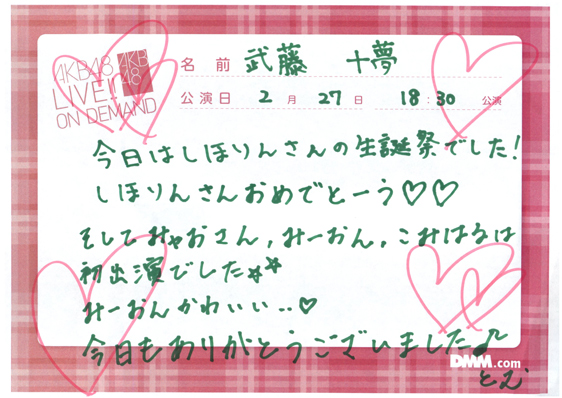 AKB48
LIVE!!
ON DEMAND
AKB
48
名前 武藤 十夢
公演日 2月27日 18:30 公演
今日はしほりんさんの生誕祭でした!
しほりんさんおめでとーう♡♡
そしてみゃおさん,みーおん,こみはるは
初出演でした☆☆
みーおんかわいい..♡
今日もありがとうございました♪
DMM.com
とむ